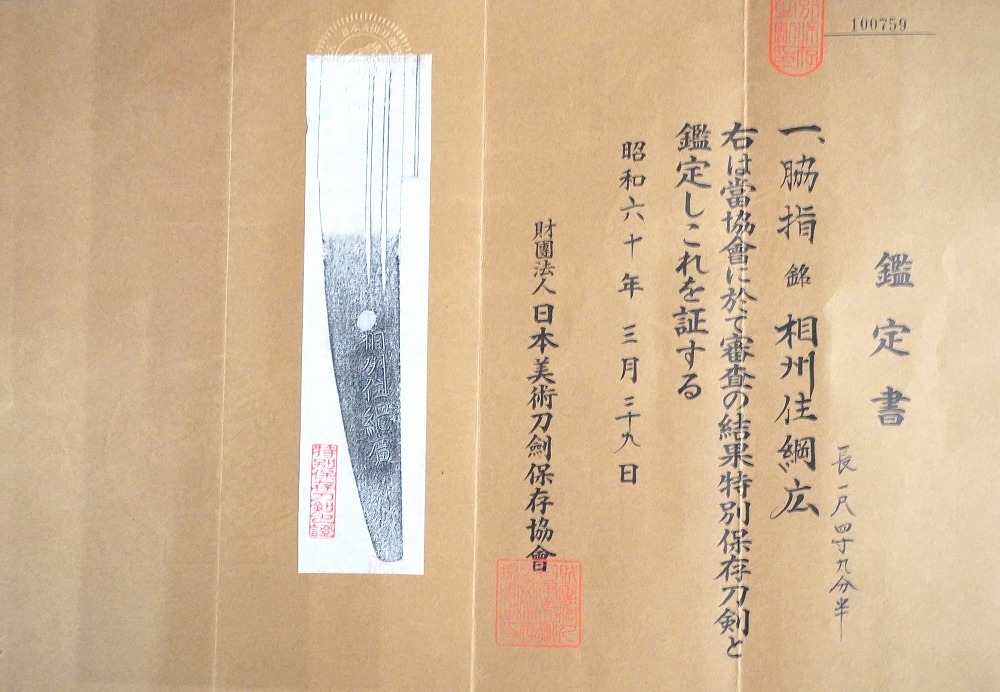 100759
鑑定書
長一尺四寸九分半
一、脇指 銘 相州住綱広
右は當協會に於て審査の結果特別保存刀剣と
鑑定しこれを証する
昭和六十年 三月二十九日
財團法人日本美術刀劍保存協會
相州住綱廣
特別保存刀剣之證